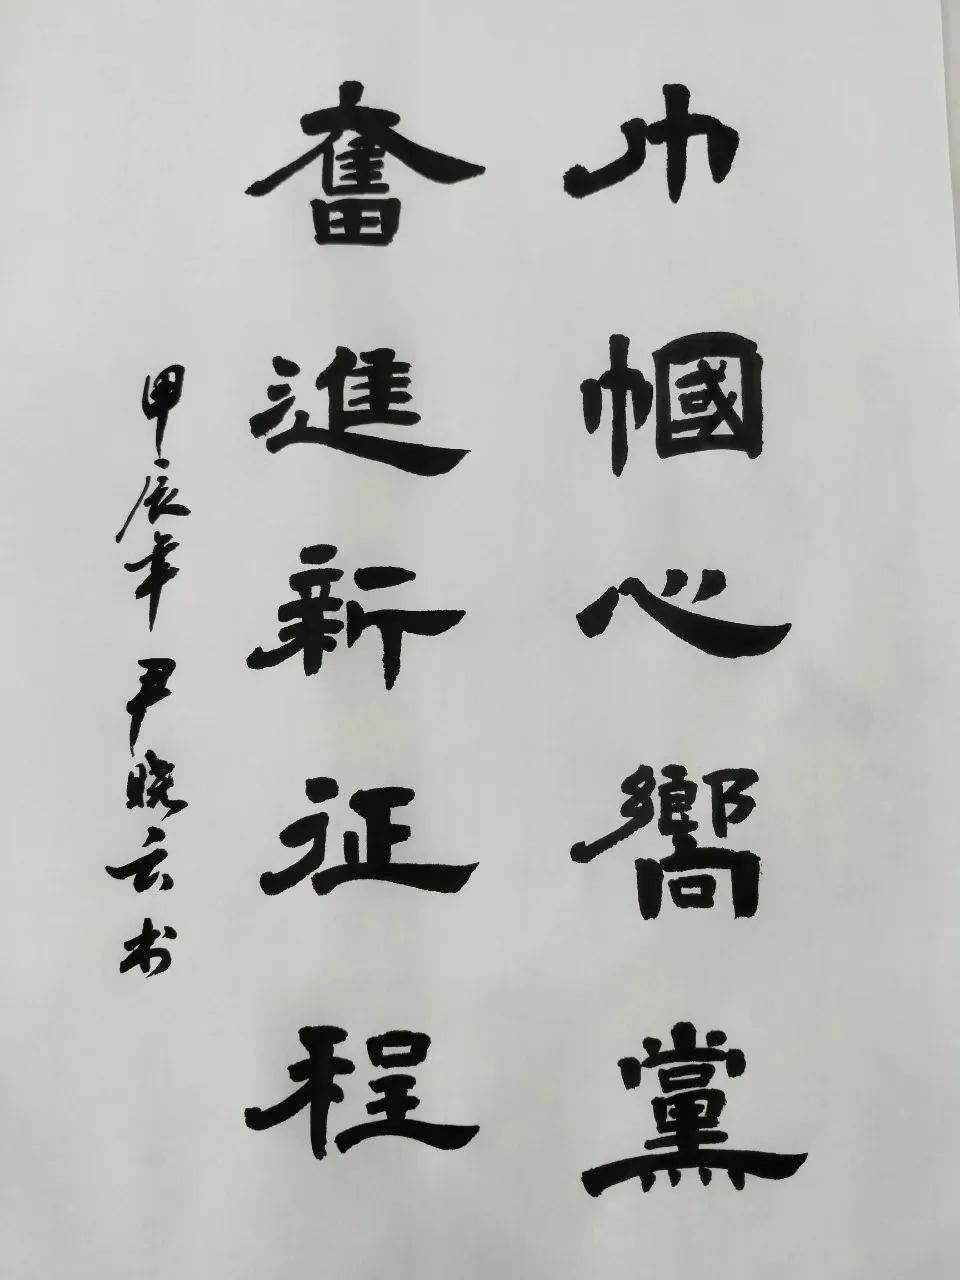 巾幗心嚮黨
奮進新征程
甲辰年 尹晓云书